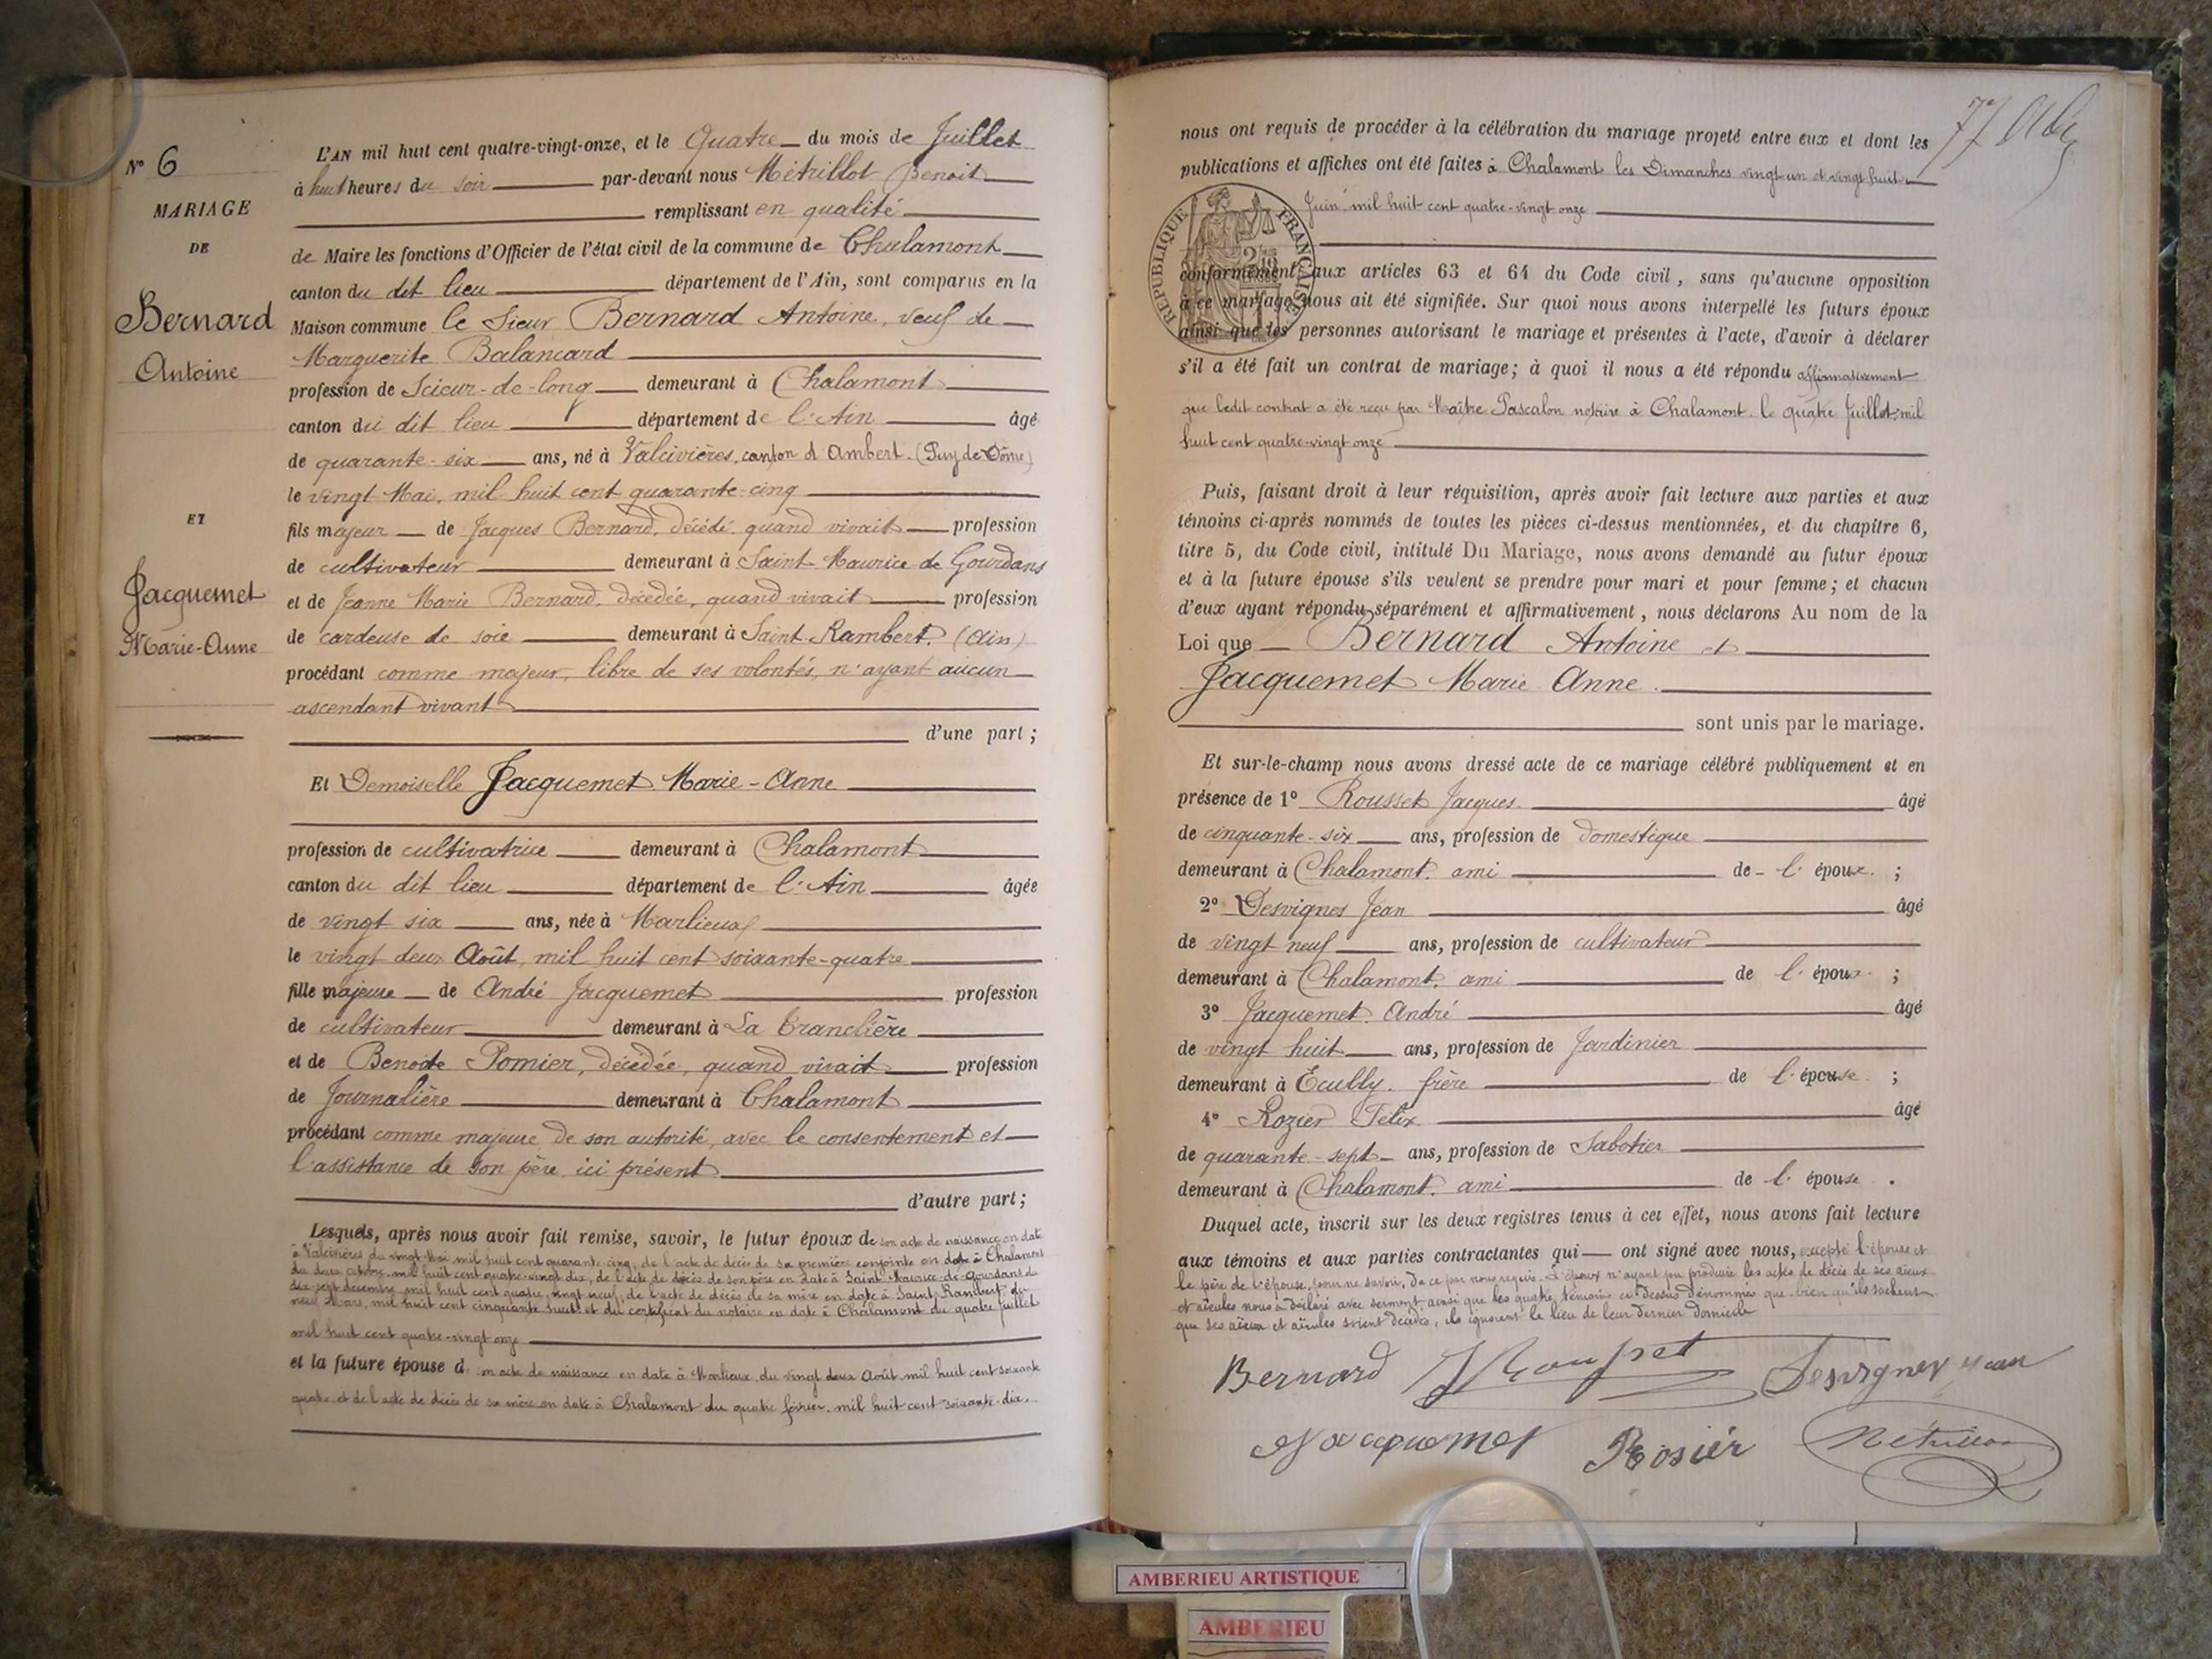 N° 6
MARIAGE
DE
Bernard
Antoine
ET
Jacquemet
Marie-Anne
L'AN mil huit cent quatre-vingt-onze, et le Quatre du mois de Juillet
à huit heures du soir par-devant nous Métrillot Benoit
remplissant en qualité
de Maire les fonctions d'Officier de l'état civil de la commune de Chalamont
canton du dit lieu département de l'Ain, sont comparus en la
Maison commune le Sieur Bernard Antoine, veuf de
Marguerite Balancard
profession de Scieur-de-long demeurant à Chalamont
canton du dit lieu département de l'Ain âgé
de quarante-six ans, né à Valcivières, canton d'Ambert. (Puy de Dôme)
le vingt Mai, mil huit cent quarante-cinq
fils majeur de Jacques Bernard, décédé, quand vivait profession
de cultivateur demeurant à Saint-Maurice de Gourdans
et de Jeanne Marie Bernard, décédée, quand vivait profession
de cardeuse de soie demeurant à Saint-Rambert. (Ain)
procédant comme majeur, libre de ses volontés, n'ayant aucun
ascendant vivant
d'une part ;
Et Demoiselle Jacquemet Marie-Anne
profession de cultivatrice demeurant à Chalamont
canton du dit lieu département de l'Ain âgée
de vingt six ans, née à Marlieux
le vingt deux Août, mil huit cent soixante-quatre
fille majeure de André Jacquemet profession
de cultivateur demeurant à La Tranclière
et de Benoite Pomier, décédée, quand vivait profession
de Journalière demeurant à Chalamont
procédant comme majeure de son autorité, avec le consentement et
l'assistance de son père, ici présent
d'autre part ;
Lesquels, après nous avoir fait remise, savoir, le futur époux de son acte de naissance en date
à Valcivières du vingt Mai mil huit cent quarante cinq, de l'acte de décès de sa première conjointe en date à Chalamont
du deux octobre mil huit cent quatre-vingt dix, de l'acte de décès de son père en date à Saint-Maurice-de-Gourdans du
dix-sept décembre mil huit cent quatre vingt neuf, de l'acte de décès de sa mère en date à Saint Rambert du
neuf Mars, mil huit cent cinquante huit et du certificat du notaire en date à Chalamont du quatre juillet
mil huit cent quatre-vingt onze
et la future épouse d son acte de naissance en date à Marlieux du vingt deux Août mil huit cent soixante
quatre et de l'acte de décès de sa mère en date à Chalamont du quatre février mil huit cent soixante-dix.
77
nous ont requis de procéder à la célébration du mariage projeté entre eux et dont les
publications et affiches ont été faites à Chalamont les Dimanches vingt-un et vingt huit
Juin mil huit cent quatre-vingt onze
RÉPUBLIQUE FRANÇAISE
conformément aux articles 63 et 64 du Code civil, sans qu'aucune opposition
à ce mariage nous ait été signifiée. Sur quoi nous avons interpellé les futurs époux
ainsi que les personnes autorisant le mariage et présentes à l'acte, d'avoir à déclarer
s'il a été fait un contrat de mariage; à quoi il nous a été répondu affirmativement
que ledit contrat a été reçu par Maître Pascalon notaire à Chalamont le quatre Juillet, mil
huit cent quatre-vingt onze
Puis, faisant droit à leur réquisition, après avoir fait lecture aux parties et aux
témoins ci-après nommés de toutes les pièces ci-dessus mentionnées, et du chapitre 6,
titre 5, du Code civil, intitulé Du Mariage, nous avons demandé au futur époux
et à la future épouse s'ils veulent se prendre pour mari et pour femme; et chacun
d'eux ayant répondu séparément et affirmativement, nous déclarons Au nom de la
Loi que Bernard Antoine et
Jacquemet Marie Anne
sont unis par le mariage.
Et sur-le-champ nous avons dressé acte de ce mariage célébré publiquement et en
présence de 1° Rousset Jacques âgé
de cinquante-six ans, profession de domestique
demeurant à Chalamont. ami de l'époux ;
2° Desvignes Jean âgé
de vingt neuf ans, profession de cultivateur
demeurant à Chalamont, ami de l'époux ;
3° Jacquemet André âgé
de vingt huit ans, profession de Jardinier
demeurant à Écully. frère de l'épouse ;
4° Rozier Félix âgé
de quarante-sept ans, profession de Sabotier
demeurant à Chalamont. ami de l'épouse .
Duquel acte, inscrit sur les deux registres tenus à cet effet, nous avons fait lecture
aux témoins et aux parties contractantes qui ont signé avec nous, excepté l'épouse et
le père de l'épouse, pour ne savoir, de ce par nous requis. L'époux n'ayant pu produire les actes de décès de ses aïeux
et aïeules nous a déclaré avec serment, ainsi que les quatre témoins ci-dessus dénommés que bien qu'ils sachent
que ses aïeux et aïeules soient décédés, ils ignorent le lieu de leur dernier domicile
Bernard J Rousset Desvignes jean
Jacquemet Rosier Métrillot
AMBERIEU ARTISTIQUE
AMBERIEU